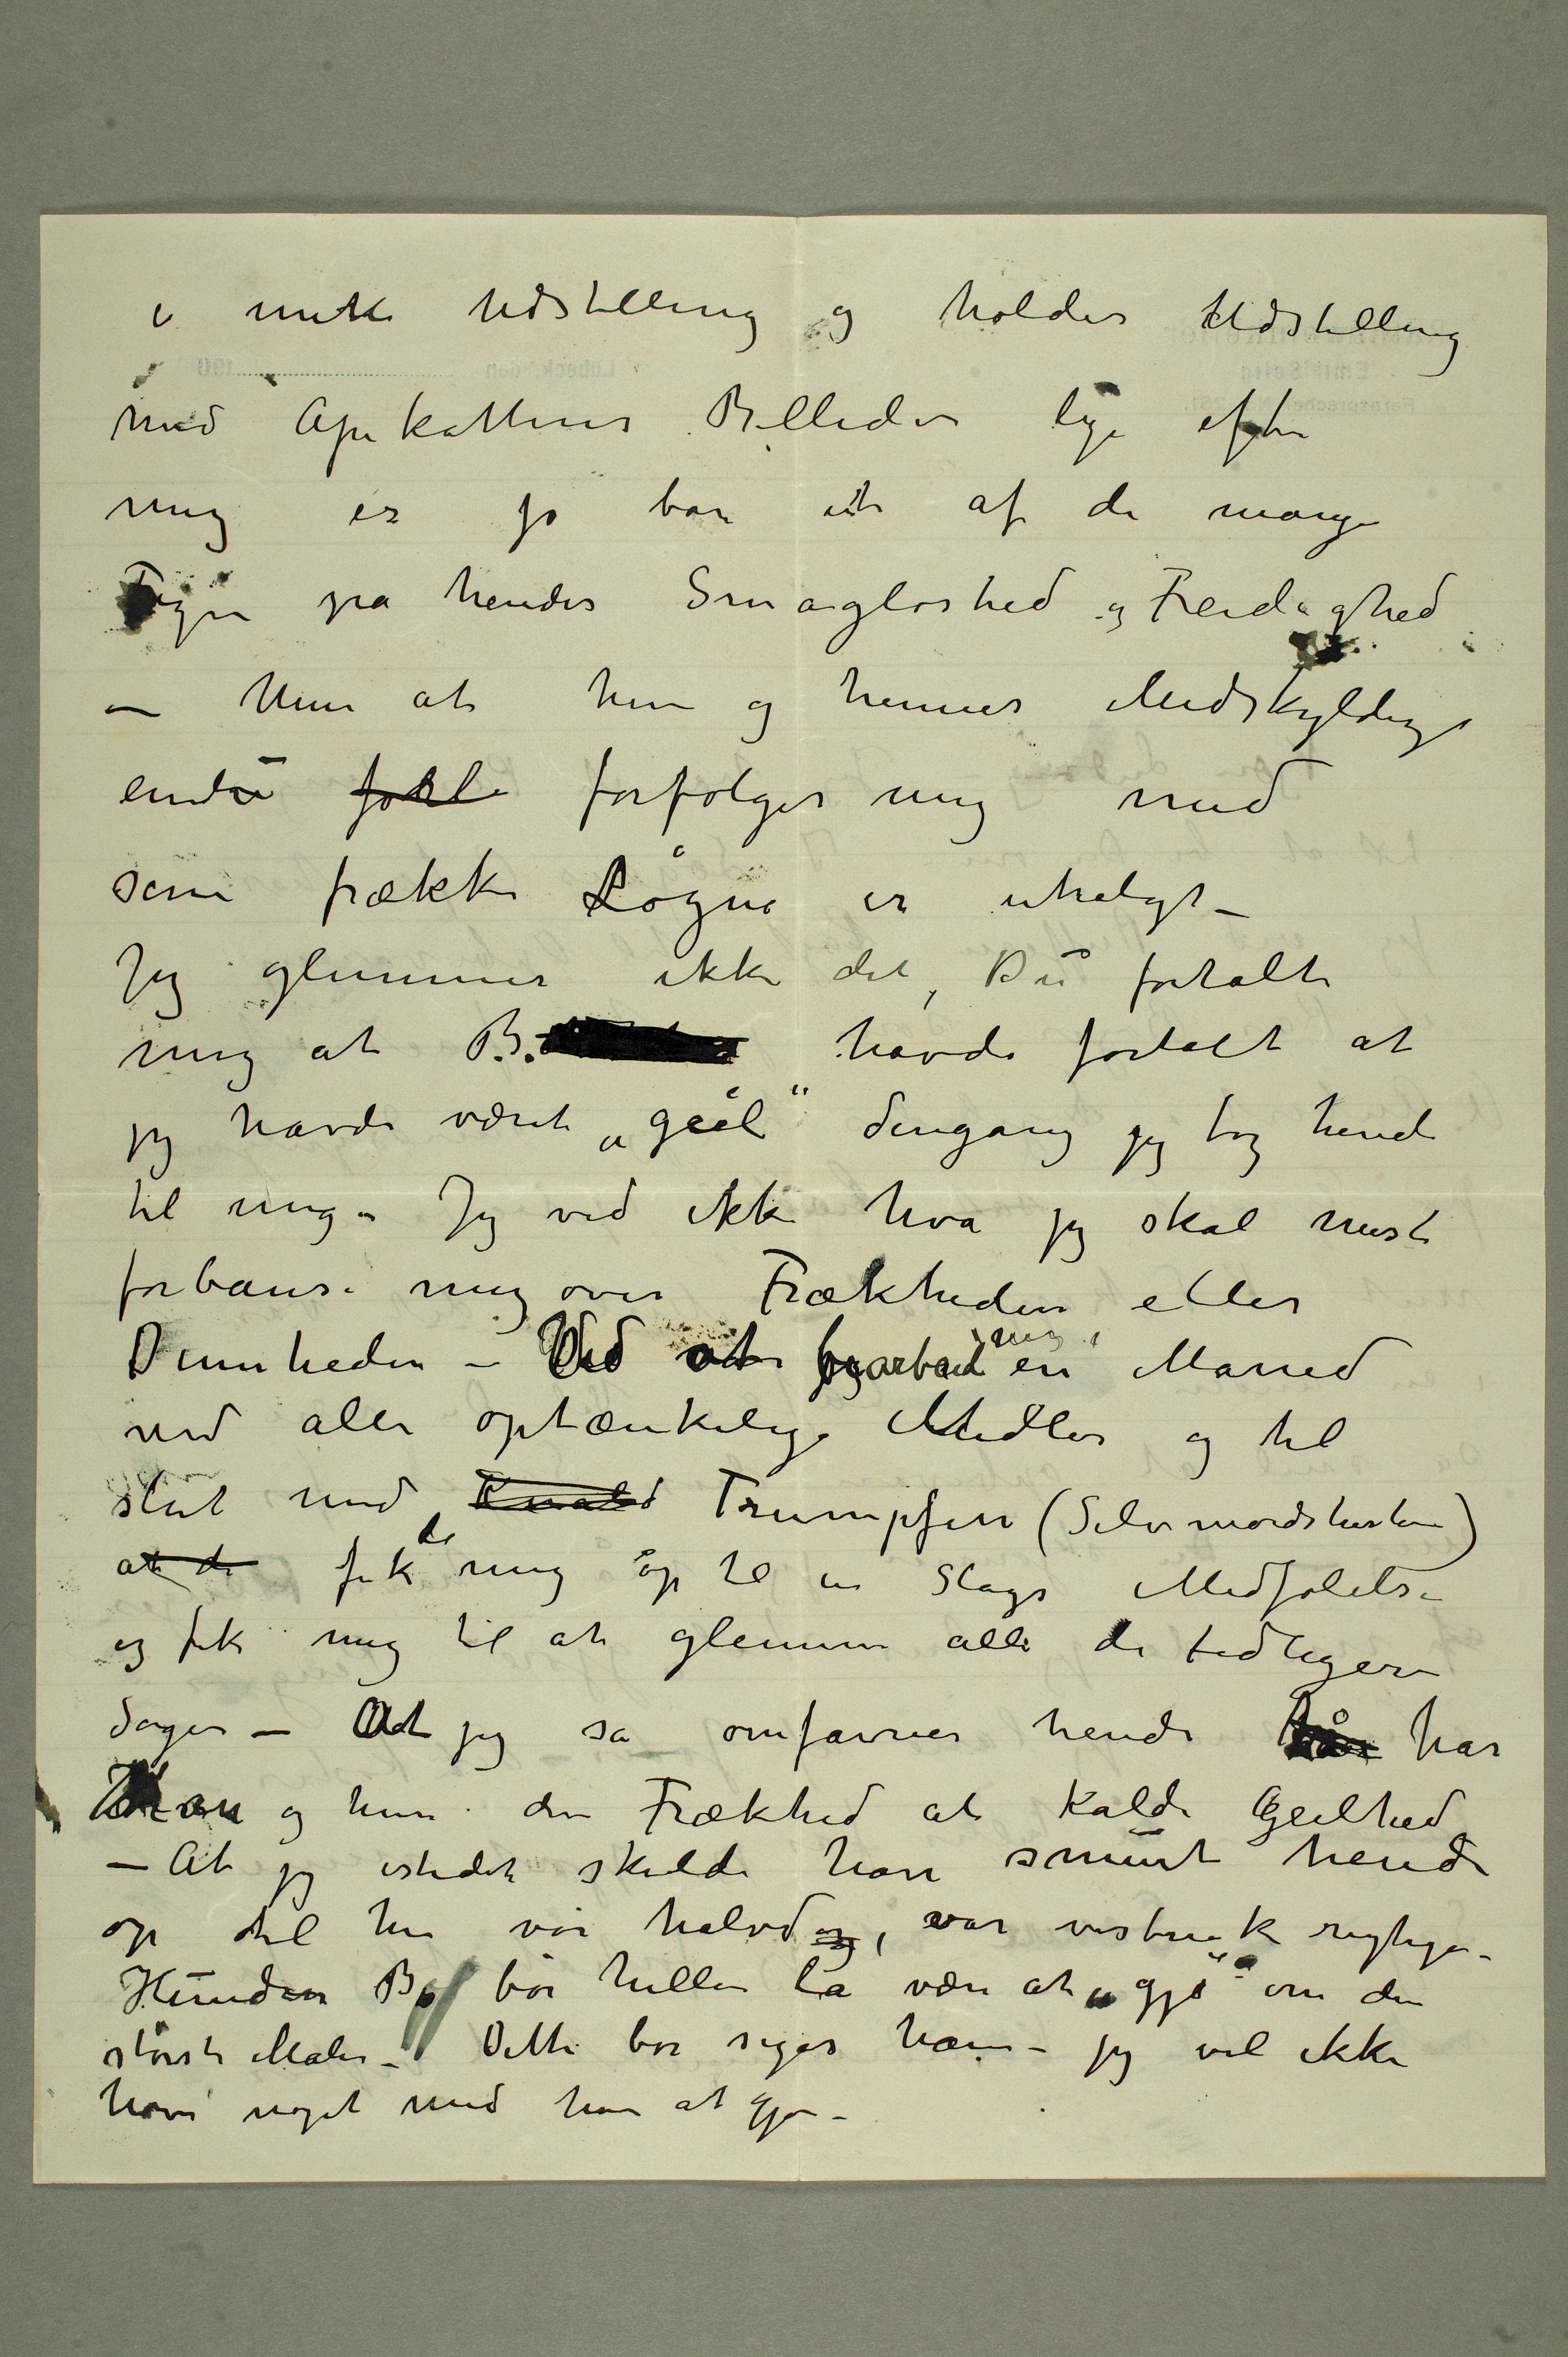 i mit Udstilling og holder Udstilling
med Apekattens Billeder lige efter
mig er jo bare et af de mange
Tegn på hendes Smagløshed og Feidighed
– Men at hun og hennes Medskyldige
endnu forfølger mig med
sine frække Løgne er utroligt –
Jeg glemmer ikke det, Du fortalte
mig at B. havde fortalt at
jeg havde været „geil" dengang jeg tog hende
til mig – Jeg ved ikke hva jeg skal mest
forbause mig over Frækheden eller
Dumheden – Ved at bearbeide mig i en Maned
med alle optænkelige Midler og til
slut med Knald Trumpfen (Selvmordshistorien)
at de fik de mig op til en Slags Medfølelse
og fik mig til at glemme alle de tidligere
Sager – At jeg så omfavner hende har
Han og hun den Frækhed at kalde Geilhed
– At jeg istedet skulde have smurt hende
op til hun var halvdø, var vistnok rigtigere –
Hunden B. bør heller la være at „gjø" om den
største Maler – Dette bør siges ham – jeg vil ikke
have noget med ham at gjøre –